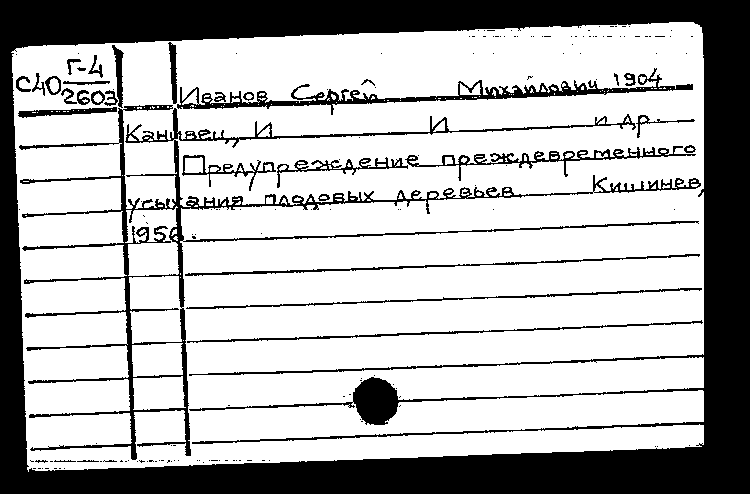 С40 Г-4
2603
Иванов, Сергей Михайлович, 1904
Канивец, И И и др.
Предупреждение преждевременного
усыхания плодовых деревьев. Кишинев,
1956.